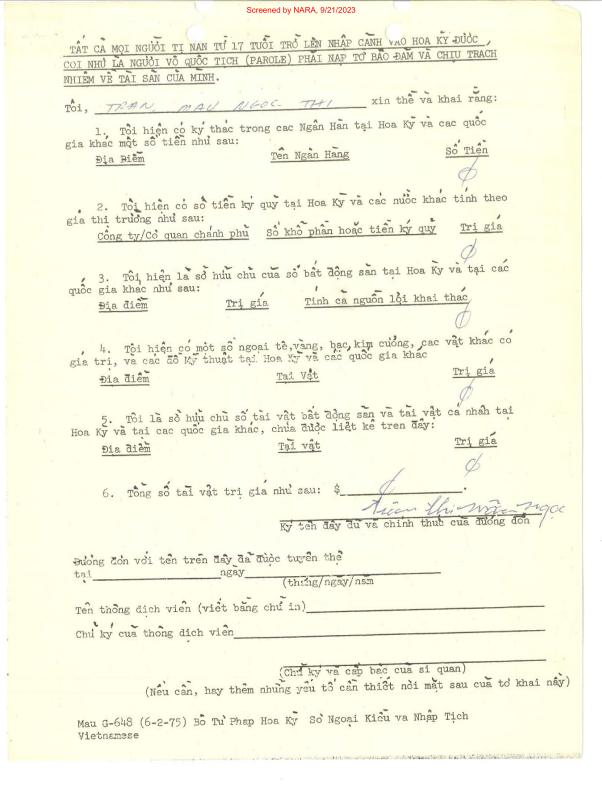 Screened by NARA, 9/21/2023
TẤT CẢ MỌI NGƯỜI TỊ NẠN TỪ 17 TUỔI TRỞ LÊN NHẬP CẢNH VAO HOA KỲ ĐƯỢC
COI NHƯ LÀ NGƯỜI VÔ QUỐC TỊCH (PAROLE) PHẢI NẠP TỜ BẢO ĐẢM VÀ CHỊU TRACH
NHIỆM VỀ TÀI SẢN CỦA MÌNH.
Tôi, TRAN MAU NGOC THI xin thề và khai rằng:
1. Tôi hiện có ký thác trong cac Ngân Hàn tại Hoa Kỳ và cac quốc
gia khác một số tiền như sau:
Địa Điểm Tên Ngân Hàng Số Tiền
ϕ
2. Tôi hiện có số tiền ký quỹ tại Hoa Kỳ và các nước khác tính theo
giá thi trường như sau:
Công ty/Cơ quan chánh phủ Số khổ phần hoặc tiền ký quỹ Trị giá
ϕ
3. Tôi hiện là sở hữu chủ của số bất động sản tại Hoa Kỳ và tại các
quốc gia khác như sau:
Địa điểm Trị gía Tính cả nguồn lợi khai thác
ϕ
4. Tôi hiện có một số ngoại tê, vàng, bạc, kim cưởng, cac vật khác có
giá trị, và các đồ Mỹ thuật tại Hoa Kỳ và các quốc gia khác
Địa điểm Tại Vật Trị giá
ϕ
5. Tôi là sở hưu chủ số tài vật bất động sản và tài vật cá nhân tại
Hoa Kỳ và tai cac quốc gia khác, chưa được liệt kê tren đây:
Địa điểm Tài vật Trị giá
ϕ
6. Tổng số tài vật trị giá như sau: $ ϕ .
Trần thị Mậu Ngọc
Ký tên đầy đủ và chính thưc của đương đơn
Đương đơn với tên trên đây đã được tuyên thệ
tại ngày
(tháng/ngày/năm
Tên thông dịch viên (viết bằng chữ in)
Chữ ký của thông dịch viên
(Chữ ký và cấp bậc của sĩ quan)
(Nếu cần, hay thêm những yếu tố cần thiết nơi mặt sau của tơ khai nầy)
Mau G-648 (6-2-75) Bô Tư Phap Hoa Kỳ Sở Ngoại Kiều va Nhập Tịch
Vietnamese